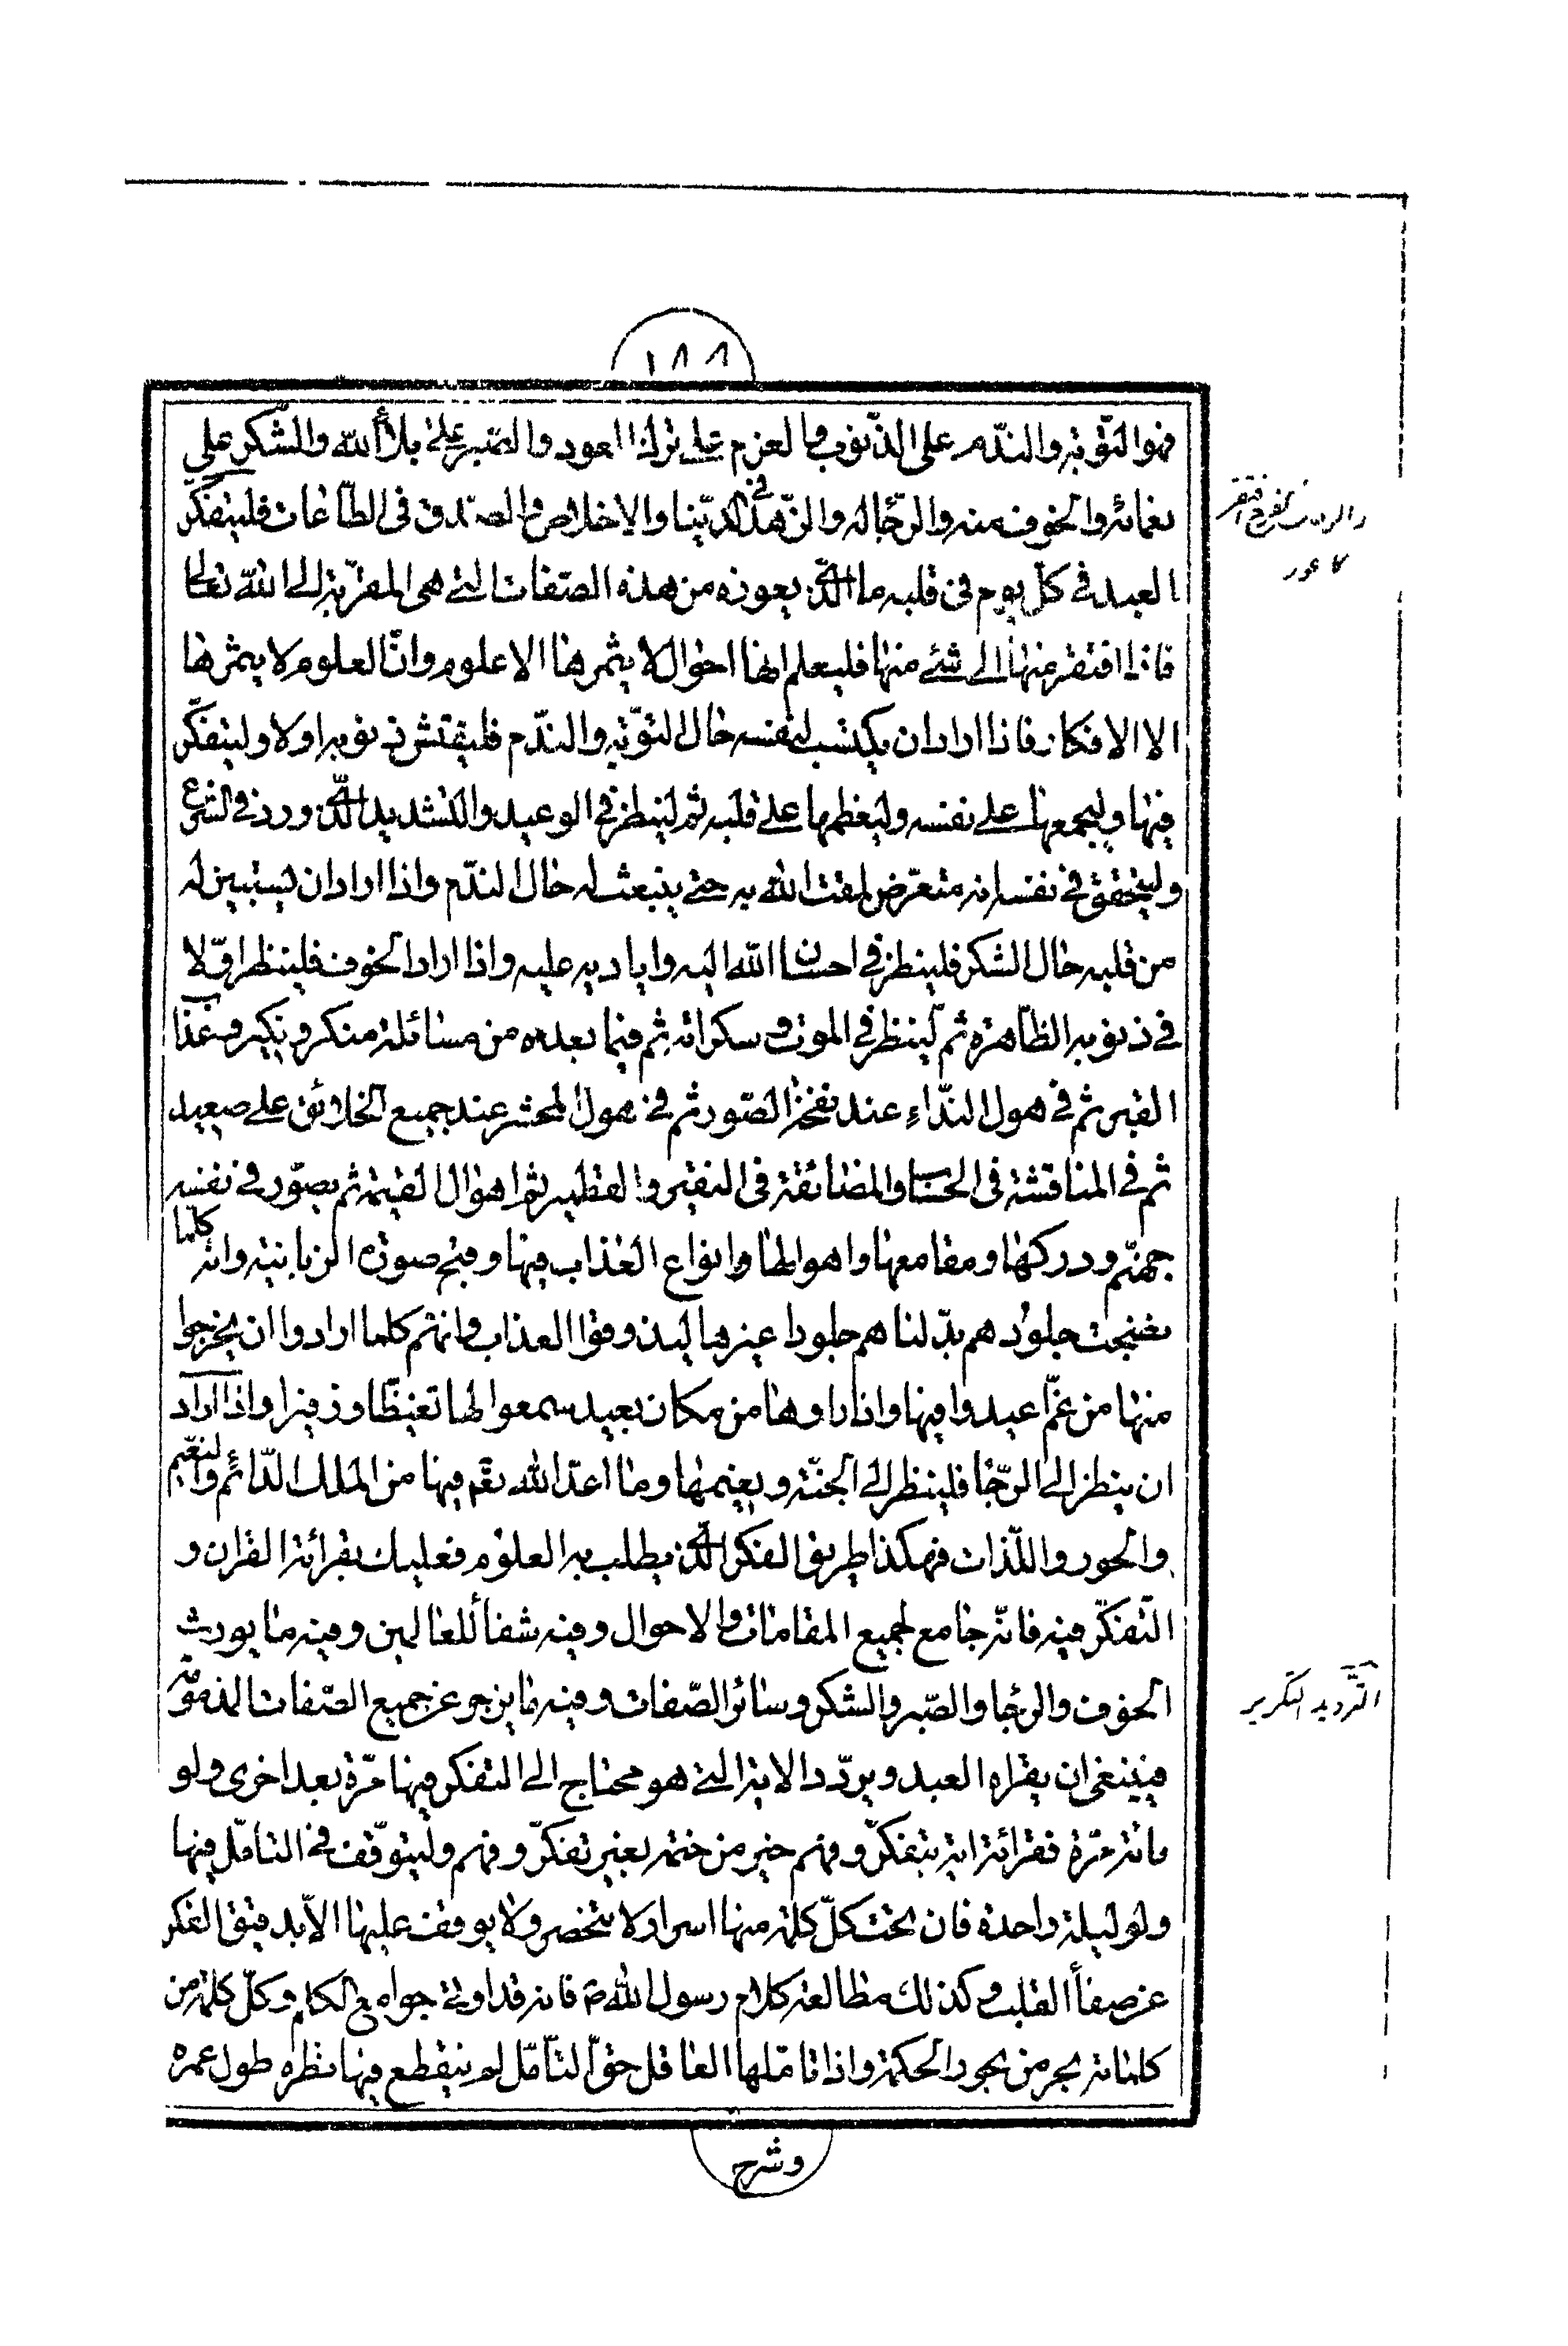 ١٨٨
فهو التّوبة والنّدم على الذّنوب والعزم على ترك العود والصّبر على بلاء الله والشّكر على
نعمائه والخوف منه والرّجا له والزّهد فى الدّنيا والاخلاص والصّدق فى الطّاعات فليتفكّر
العبد فى كلّ يوم فى قلبه ما الّذى يعوزه من هذه الصّفات التى هى المقرّبة الى الله تعالى
فاذا افتقر منها الى شئ منها فليعلم انها احوال لا يثمرها الا علوم وانّ العلوم لا يثمرها
الا الافكار فاذا اراد ان يكتسب لنفسه حال التوّبة والندّم فليفتش ذنوبه اولا وليتفكّر
فيها وليجمعها على نفسه وليعظمها على قلبه ثم لينظر فى الوعيد والتشديد الّذى ورد فى الشرع
وليتحقق فى نفسه انه متعرّض لمقت الله به حتى ينبعث له حال الندّم واذا اراد ان يستبين له
من قلبه حال الشكر فلينظر فى احسان الله اليه واياديه عليه واذا اراد الخوف فلينظر اوّلا
فى ذنوبه الظّاهرة ثم لينظر فى الموت وسكراته ثم فيما بعده من مسائلة منكر ونكير وعذاب
القبر ثم فى هول النّداء عند نفخة الصّور ثم فى هول المحشر عند جميع الخلائق على صعيد
ثم فى المناقشة فى الحساب والمضائقة فى النقير والقطمير ثم اهوال القيمة ثم يصوّر فى نفسه
جهنّم ودركها ومقامعها واهوالها وانواع العذاب فيها وقبح صورة الزبانية وانه كلّما
نضجت جلودهم بدّلناهم جلودا غيرها ليذوقوا العذاب وانهم كلما ارادوا ان يخرجوا
منها من غمّ اعيدوا فيها واذا راوها من مكان بعيد سمعوا لها تغيّظا وزفيرا واذا اراد
ان ينظر الى الرّجا فلينظر الى الجنّة ونعيمها وما اعدّ الله تعم فيها من الملك الدّائم والنعيم
والحور واللّذات فهكذا طريق الفكر الّذى يطلب به العلوم فعليك بقرائة القرآن و
التّفكّر فيه فانّه جامع لجميع المقامات والاحوال وفيه شفاء للعالمين وفيه ما يورث
الخوف والرجا والصّبر والشكر وسائر الصّفات وفيه ما يزجر عن جميع الصّفات المذمومة
فينبغى ان يقراه العبد ويردّد الاية التى هو محتاج الى التفكر فيها مرّة بعد اخرى ولو
مائة مرّة فقرائة اية بتفكّر وفهم خير من ختمة بغير تفكّر وفهم وليتوّقف فى التامّل فيها
ولو ليلة واحدة فان تحت كلّ كلمة منها اسرار لا تنحصر ولا يوقف عليها الاّ بدقيق الفكر
عن صفاء القلب وكذلك مطالعة كلام رسول الله ص فانه قد اوتى جوامع الكلم وكلّ كلمة من
كلماته بحر من بحور الحكمة واذا تامّلها العاقل حقّ التأمّل لم ينقطع فيها نظره طول عمره
وشرح
التّرديد التكرير